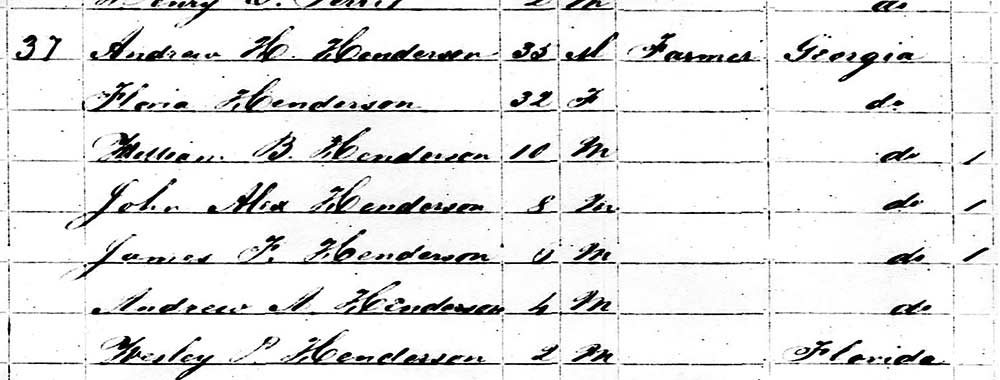 Henry 2 M do
37 Andrew H. Henderson 35 M Farmer Georgia
Henderson 32 F do
William B. Henderson 10 M do 1
John Alex Henderson 8 M do 1
James F. Henderson M do 1
Andrew A. Henderson 4 M do
Wesley P. Henderson 2 M Florida